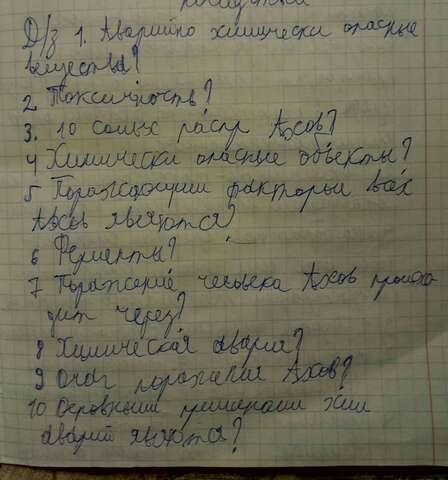 Д/з 1. Аварийно химически опасные
вещества?
2 Токсичность?
3. 10 самых распр Ахов?
4 Химически опасные объекты?
5 Поражающими факторы всех
Ахов являются?
6 Ферменты?
7 Поражение человека Ахов происхо
дит через?
8 Химическая авария?
9 Очаг поражения Ахов?
10 Основными причинами хим
аварий являются?